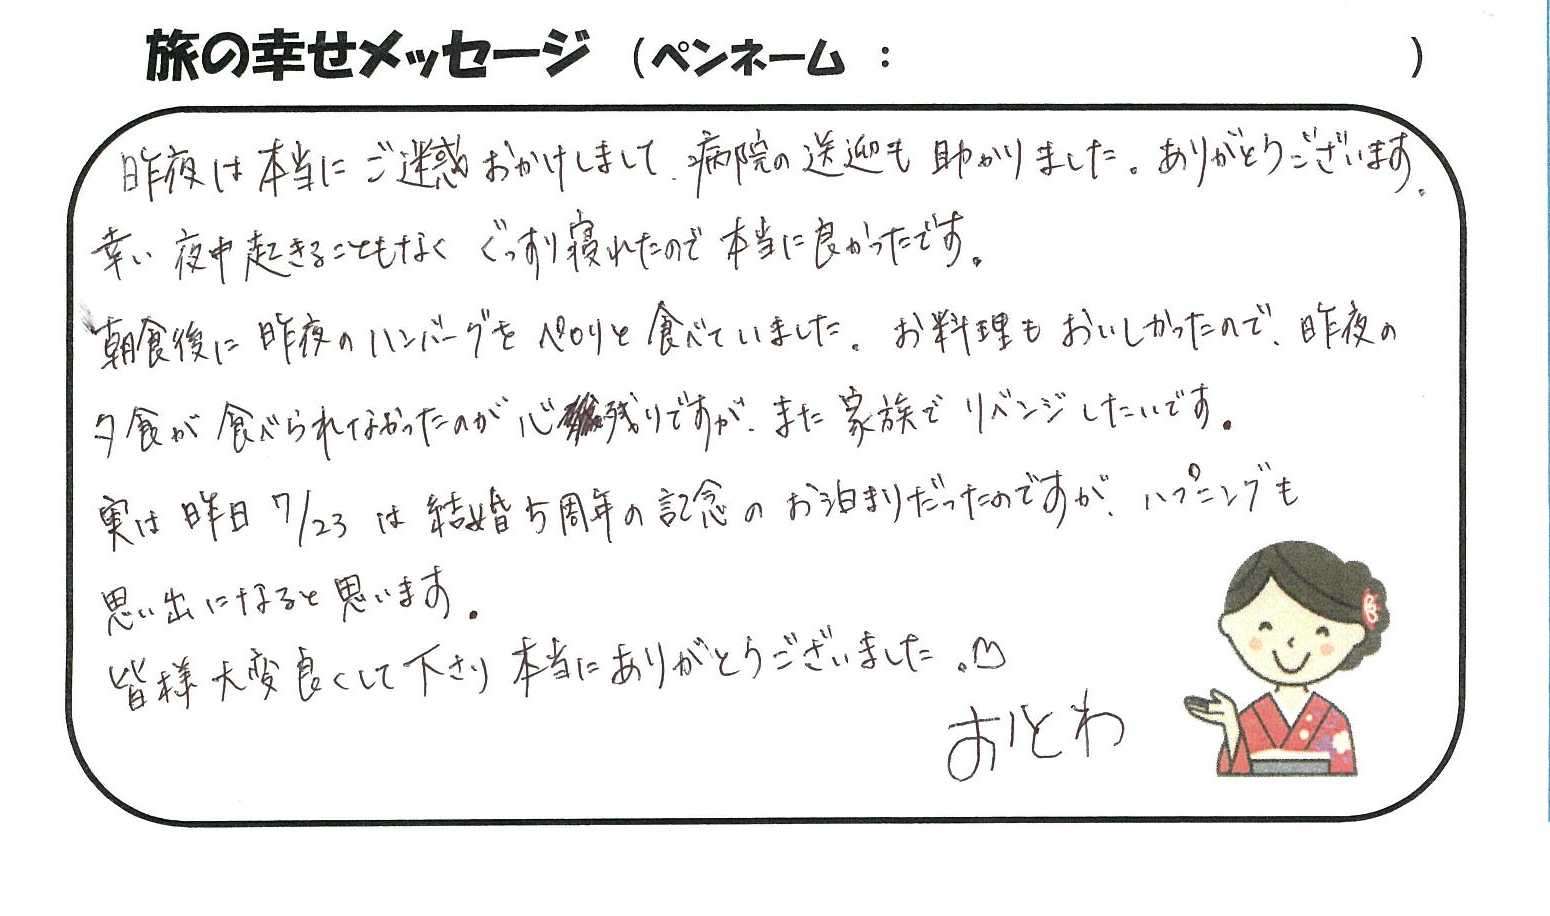 旅の幸せメッセージ （ペンネーム ：　　　　　）
昨夜は本当にご迷惑おかけしまして、病院の送迎も助かりました。ありがとうございます。
幸い夜中起きることもなくぐっすり寝れたので本当に良かったです。
朝食後に昨夜のハンバーグをペロリと食べていました。お料理もおいしかったので、昨夜の
夕食が食べられてなかったのが心残りですが、また家族でリベンジしたいです。
実は昨日7/23は結婚5周年の記念のお泊まりだったのですが、ハプニングも
思い出になると思います。
皆様大変良くして下さり本当にありがとうございました。♡
おとわ